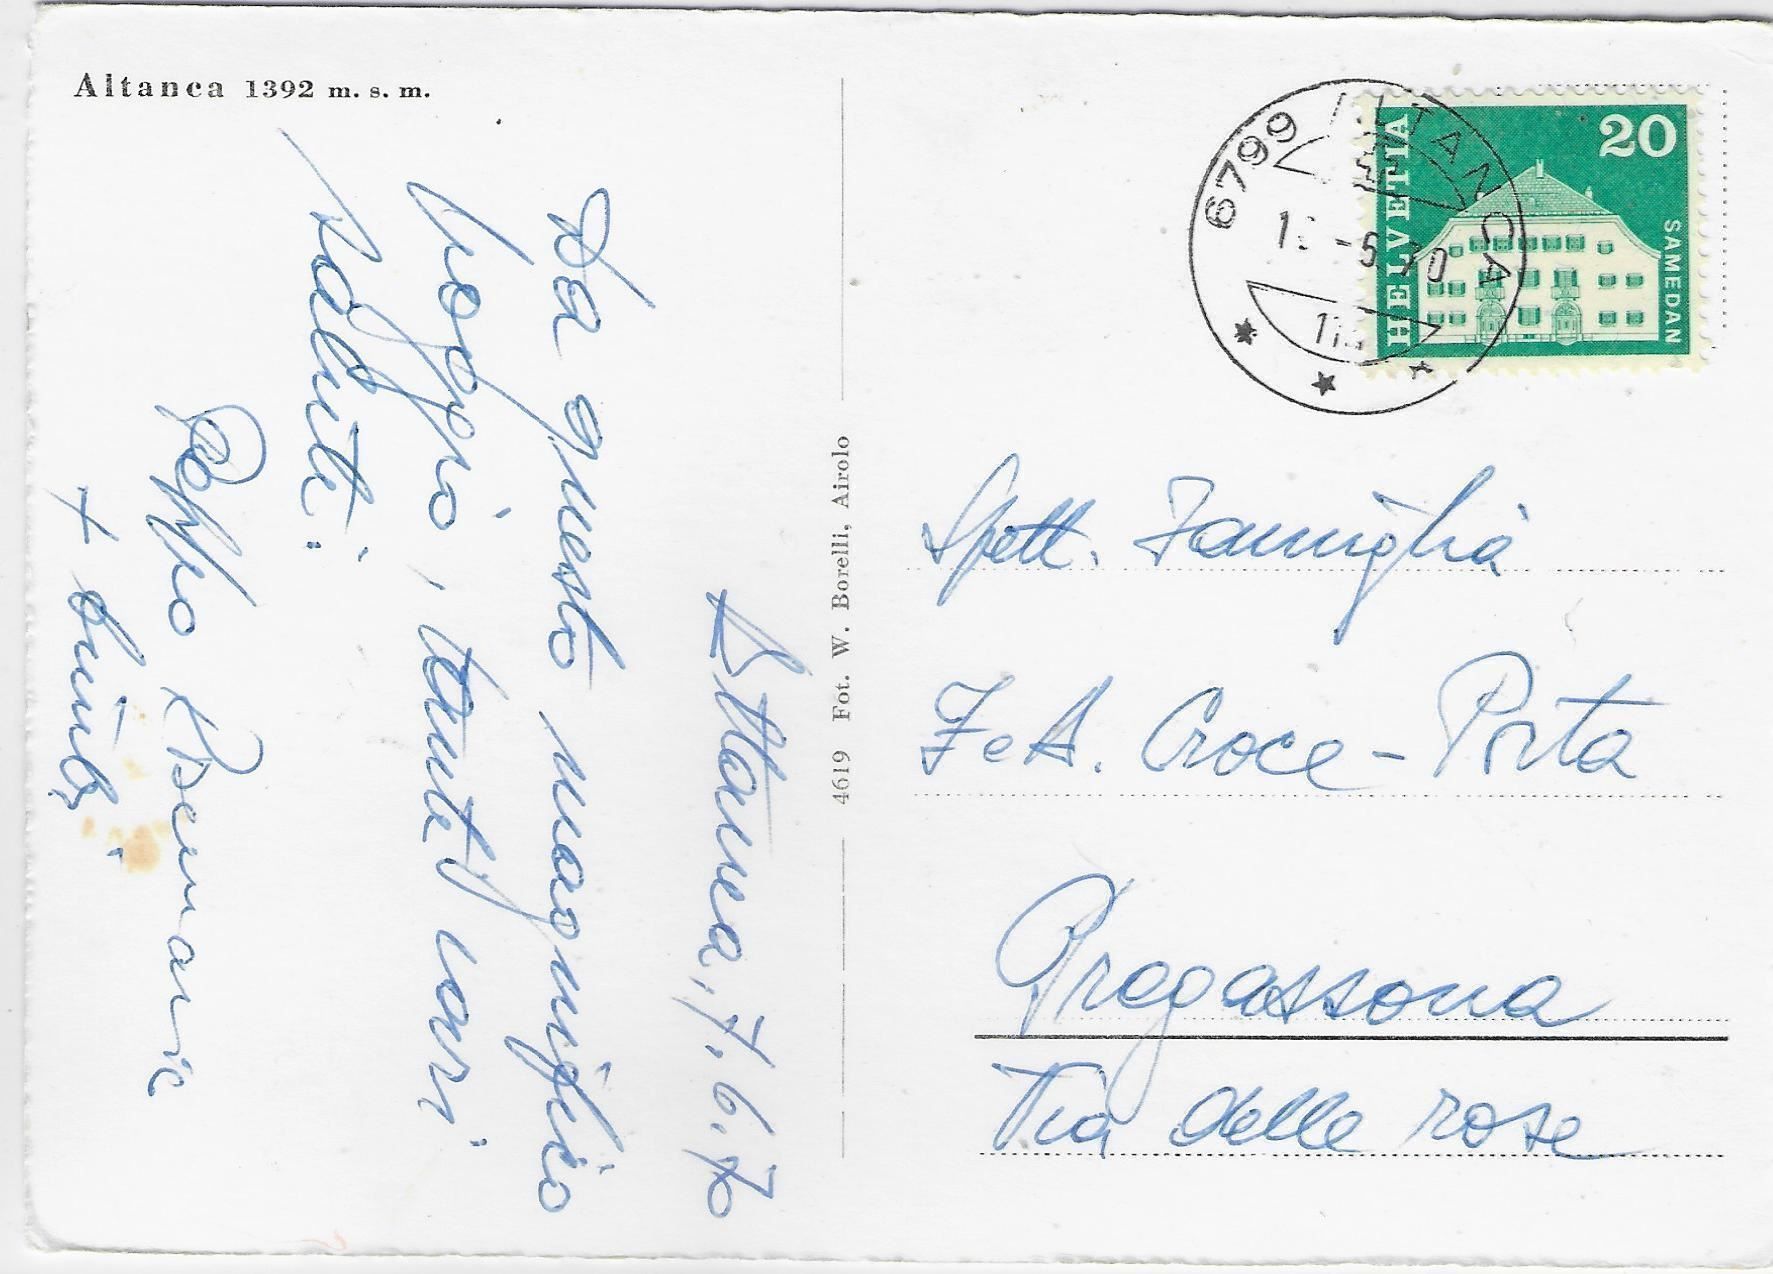 Altanca 1392 m. s. m.
Altanca, 7.6.70
Da questo magnifico
poggio, tanti cari
saluti:
Peppo Rosemarie
4619 Fot. W. Borelli, Airolo
6799 ALTANCA
-6.70
HELVETIA
20
SAMEDAN
Spett. Famiglia
F e A. Croce-Porta
Pregassona
Via delle rose